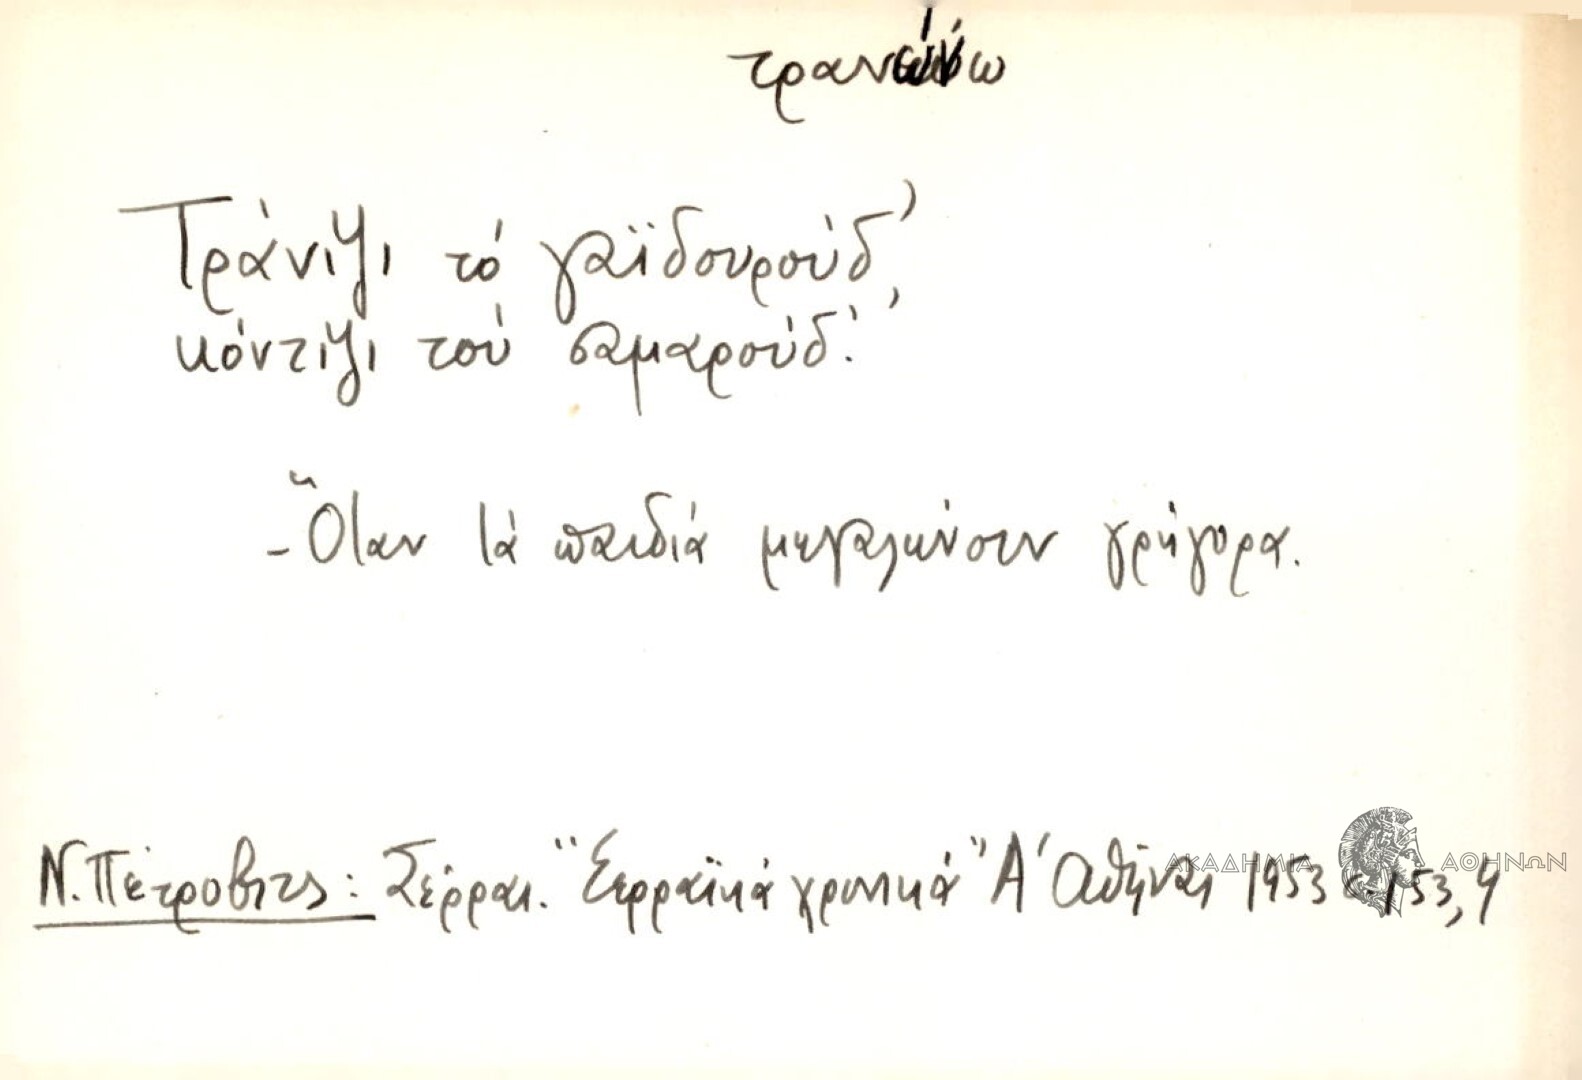 τρανώνω
Τράνιψι τό γαϊδουρούδ',
κόντιψι τού σαμαρούδ'.
- Ὅταν τά παιδιά μεγαλώνουν γρήγορα.
Ν. Πέτροβιτς: Σέρραι. "Σερραϊκά χρονικά" Α' Ἀθῆναι 1953 σ. 153, 9
ΑΚΑΔΗΜΙΑ ΑΘΗΝΩΝ